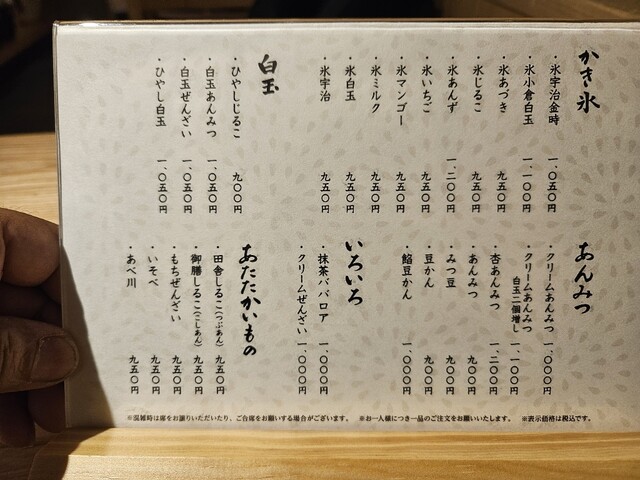 かき氷
・氷宇治金時 一、〇五〇円
・氷小倉白玉 一、一〇〇円
・氷あづき 九五〇円
・氷じるこ 九五〇円
・氷あんず 一、二〇〇円
・氷いちご 九五〇円
・氷マンゴー 九五〇円
・氷ミルク 九五〇円
・氷白玉 九五〇円
・氷宇治 九五〇円
白玉
・ひやしじるこ 九〇〇円
・白玉あんみつ 一、〇五〇円
・白玉ぜんざい 一、〇五〇円
・ひやし白玉 一、〇五〇円
あんみつ
・クリームあんみつ 一、〇〇〇円
・クリームあんみつ
白玉二個増し 一、一〇〇円
・杏あんみつ 一、二〇〇円
・あんみつ 九〇〇円
・みつ豆 九〇〇円
・豆かん 九〇〇円
・餡豆かん 一、〇〇〇円
いろいろ
・抹茶ババロア 一、〇〇〇円
・クリームぜんざい 一、〇〇〇円
あたたかいもの
・田舎しるこ(つぶあん) 九五〇円
・御膳しるこ(こしあん) 九五〇円
・もちぜんざい 九五〇円
・いそべ 九五〇円
・あべ川 九五〇円
※混雑時は席をお譲りいただいたり、ご台席をお願いする場合がございます。 ※お一人様につき一品のご注文をお願いいたします。 ※表示価格は税込です。